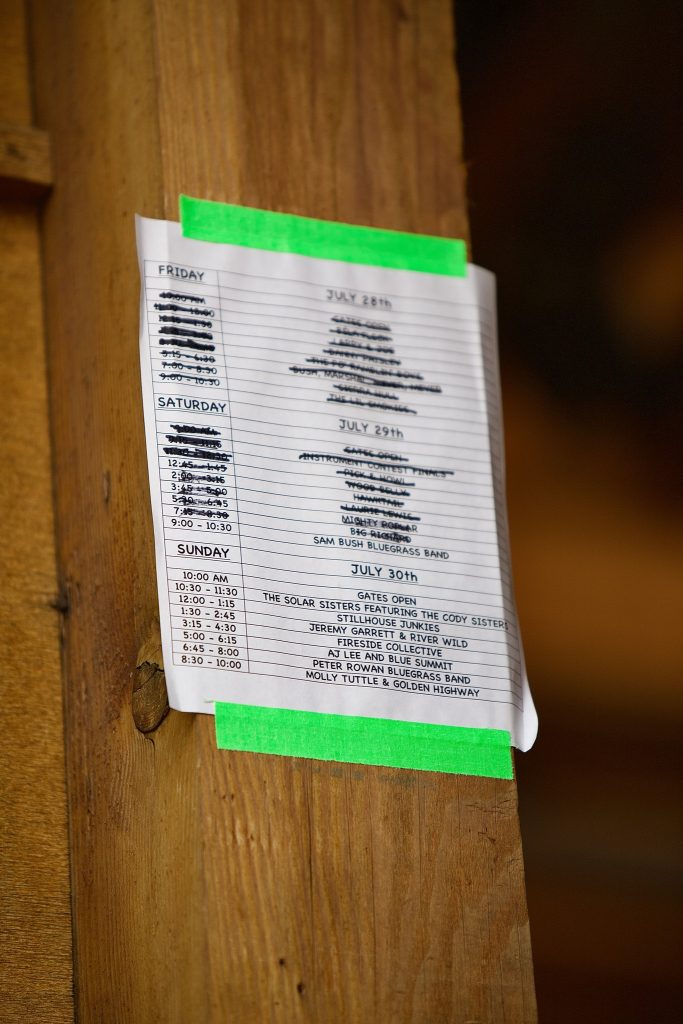 FRIDAY JULY 28th
10:00 AM GATES OPEN
5:15 - 6:30
7:00 - 8:30
9:00 - 10:30 THE LIL SMOKIES
SATURDAY JULY 29th
GATES OPEN
INSTRUMENT CONTEST FINALS
PICK & HOWL
12:45 - 1:45 WOOD BELLY
2:00 - 3:15 HAWKTAIL
3:45 - 5:00 LAURIE LEWIS
5:30 - 6:45 MIGHTY POPLAR
7:15 - 8:30 BIG RICHARD
9:00 - 10:30 SAM BUSH BLUEGRASS BAND
SUNDAY JULY 30th
10:00 AM GATES OPEN
10:30 - 11:30 THE SOLAR SISTERS FEATURING THE CODY SISTERS
12:00 - 1:15 STILLHOUSE JUNKIES
1:30 - 2:45 JEREMY GARRETT & RIVER WILD
3:15 - 4:30 FIRESIDE COLLECTIVE
5:00 - 6:15 AJ LEE AND BLUE SUMMIT
6:45 - 8:00 PETER ROWAN BLUEGRASS BAND
8:30 - 10:00 MOLLY TUTTLE & GOLDEN HIGHWAY